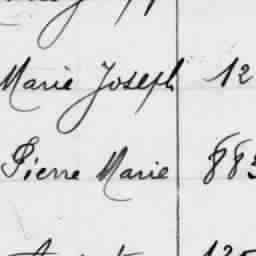 Marie Joseph 12
Pierre Marie 883